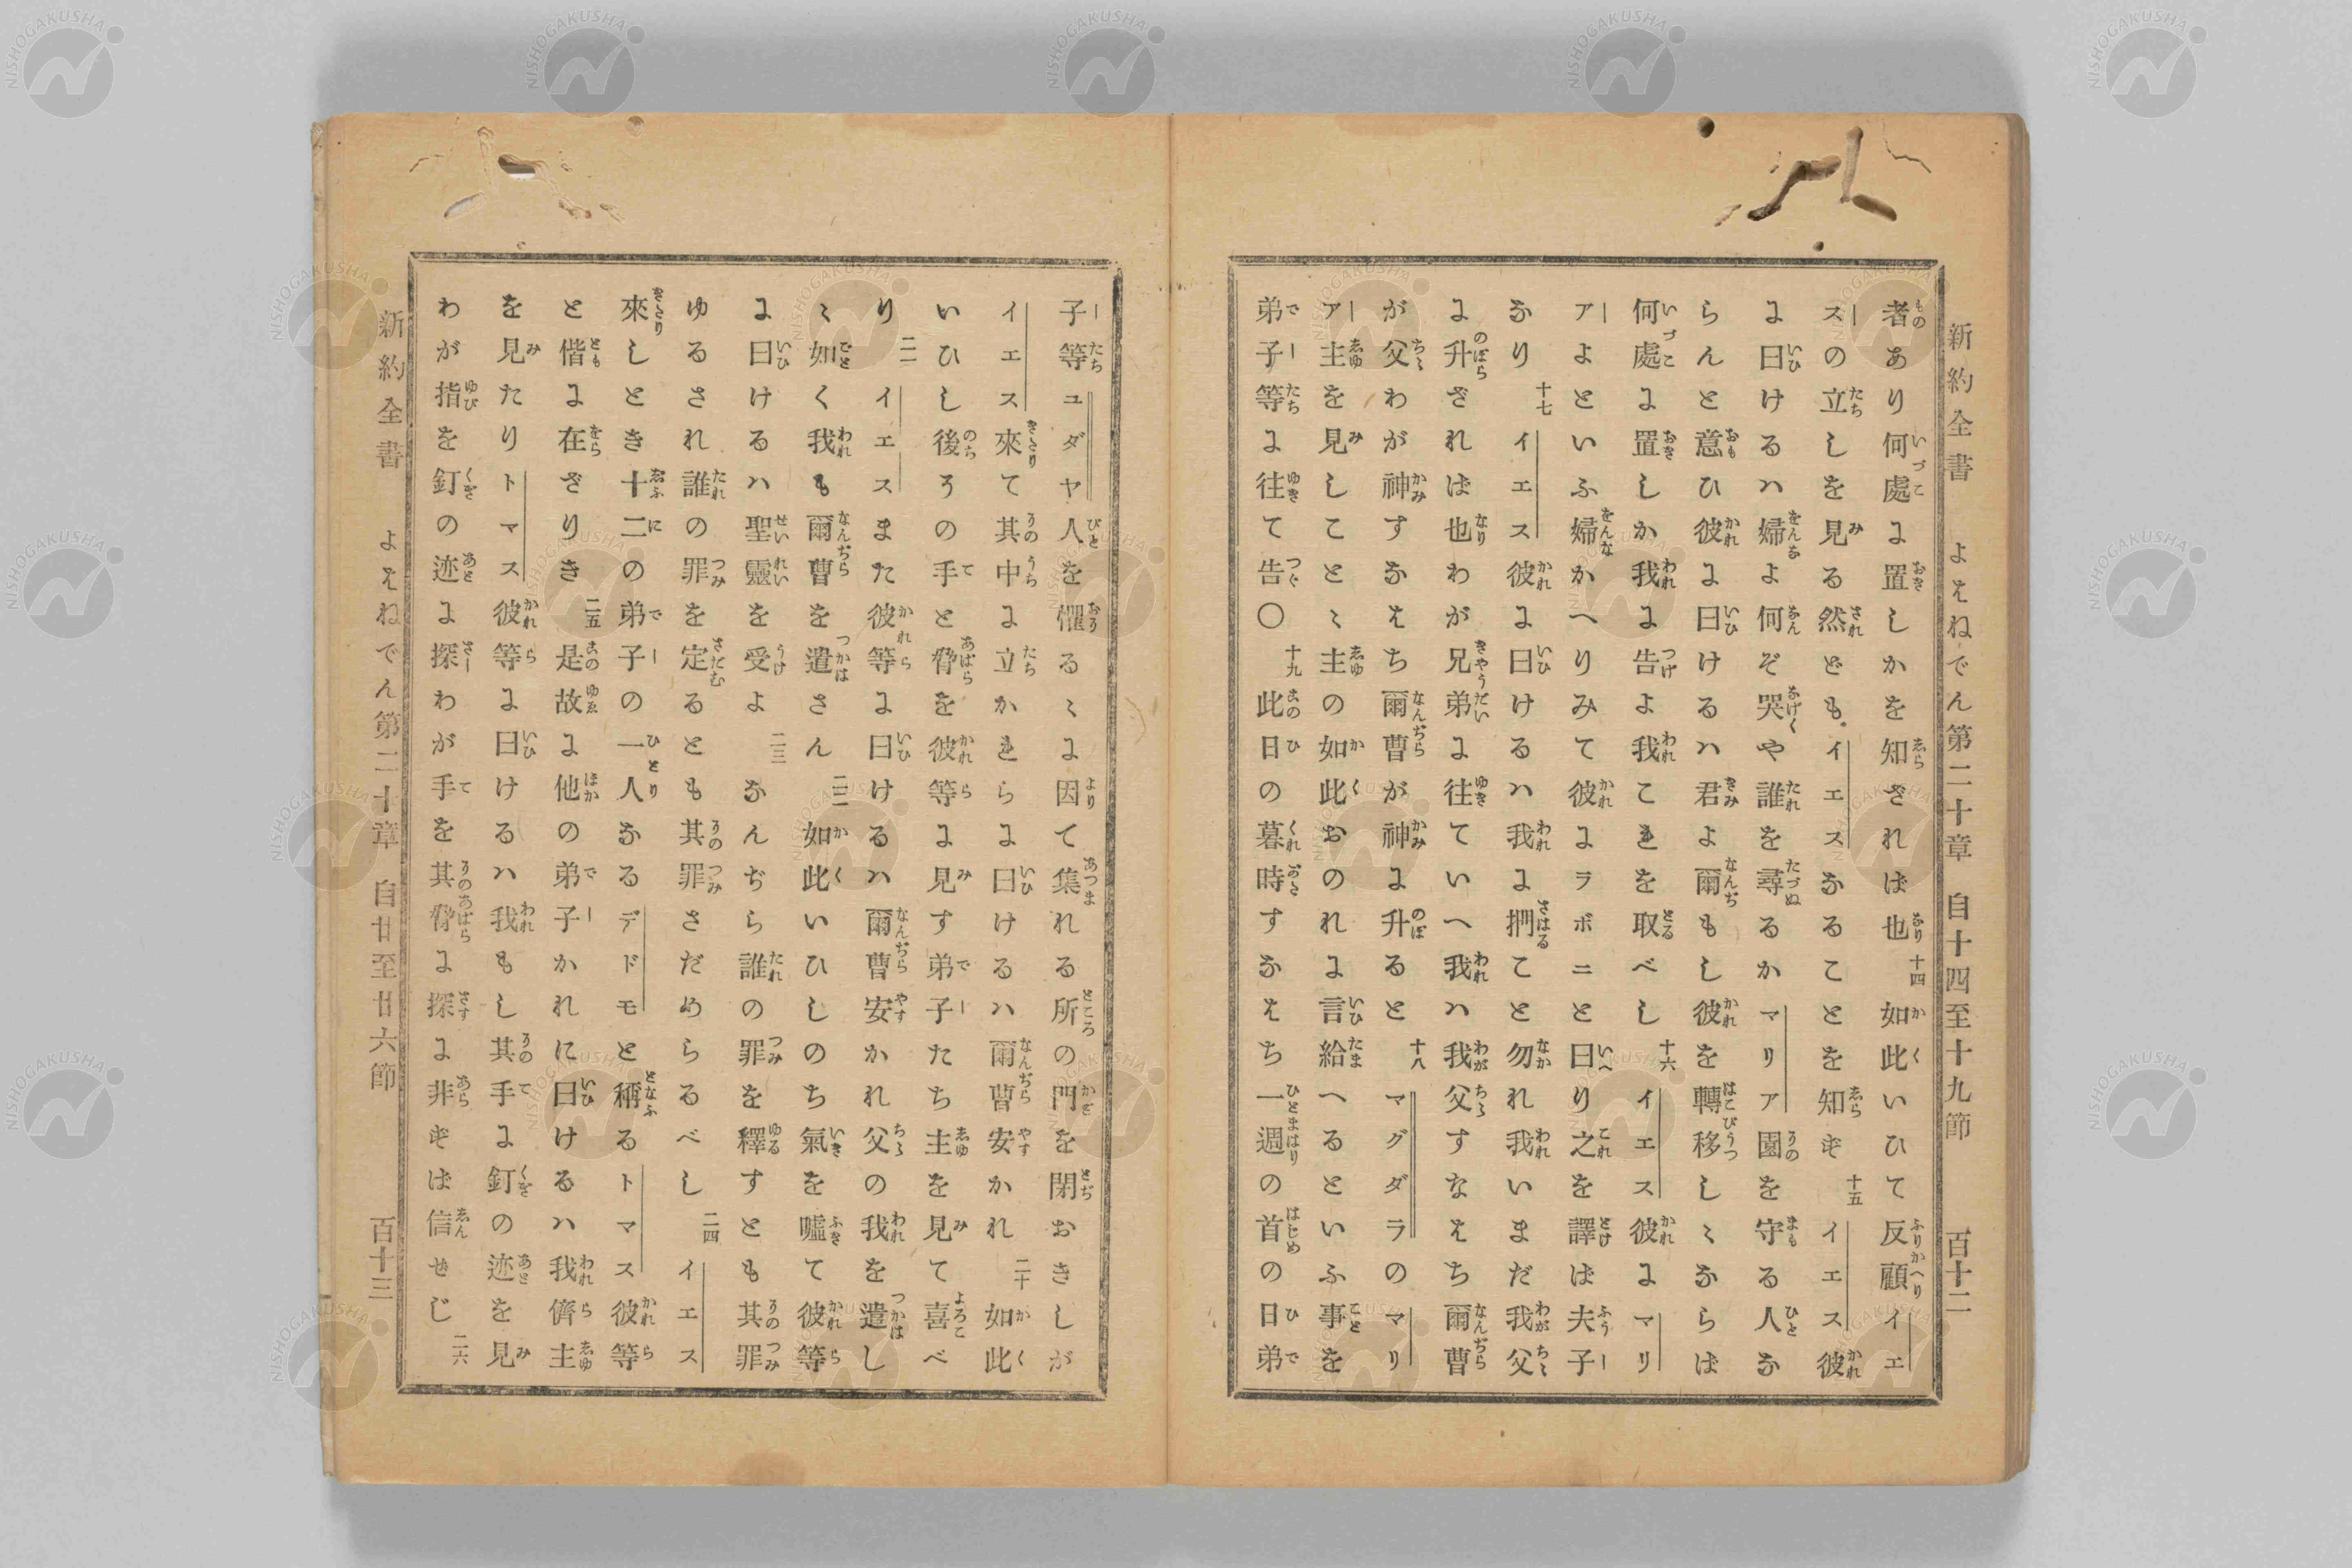 新約全書 よはねでん第二十章 自十四至十九節 百十二
者あり何處に置しかを知ざれば也十四如此いひて反顧イエ
スの立しを見る然ども。イエスなることを知らず十五イエス彼
に曰けるハ婦よ何ぞ哭や誰を尋るかマリア園を守る人な
らんと意ひ彼に曰けるハ君よ爾もし彼を轉移しゝならば
何處に置しか我に告よ我これを取べし十六イエス彼にマリ
アよといふ婦かへりみて彼にラボニと曰り之を譯ば夫子
なり十七イエス彼に曰けるハ我に捫こと勿れ我いまだ我父
に升ざれば也わが兄弟に往ていへ我ハ我父すなはち爾曹
が父わが神すなはち爾曹が神に升ると十八マグダラのマリ
ア主を見しことゝ主の如此おのれに言給へるといふ事を
弟子等に往て告〇十九此日の暮時すなはち一週の首の日弟
子等ユダヤ人を懼るゝに因て集れる所の門を閉おきしが
イエス來て其中に立かれらに曰けるハ爾曹安かれ二十如此
いひし後その手と脅を彼等に見す弟子たち主を見て喜べ
り二一イエスまた彼等に曰けるハ爾曹安かれ父の我を遣し
ゝ如く我も爾曹を遣さん二二如此いひしのち氣を嘘て彼等
に曰けるハ聖靈を受よ二三なんぢら誰の罪を釋すとも其罪
ゆるされ誰の罪を定るとも其罪さだめらるべし二四イエス
來しとき十二の弟子の一人なるデドモと稱るトマス彼等
と偕に在ざりき二五是故に他の弟子かれに曰けるハ我儕主
を見たりトマス彼等に曰けるハ我もし其手に釘の迹を見
わが指を釘の迹に探わが手を其脅に探に非ずば信せじ二六
新約全書 よはねでん第二十章 自廿至廿六節 百十三